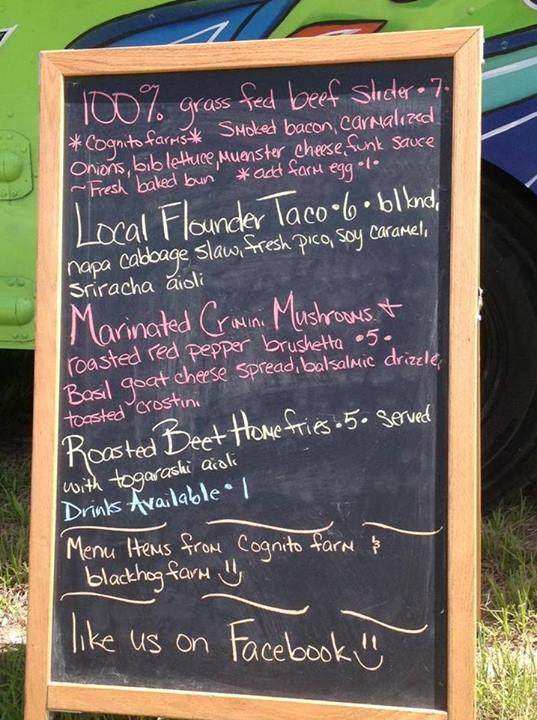 100% grass fed beef Slider • 7 •
* Cognito farms * Smoked bacon, carmalized
Onions, bib lettuce, Muenster cheese, funk sauce
~ Fresh baked bun * add farm egg • 1 •
Local Flounder Taco • 6 • blknd,
napa cabbage slaw, fresh pico, soy caramel,
sriracha aioli
Marinated Crimini Mushrooms &
roasted red pepper brushetta • 5 •
Basil goat cheese spread, balsalmic drizzle,
toasted crostini
Roasted Beet Home fries • 5 • Served
with togarashi aioli
Drinks Available • 1
Menu Items from Cognito farm &
blackhog farm
like us on Facebook